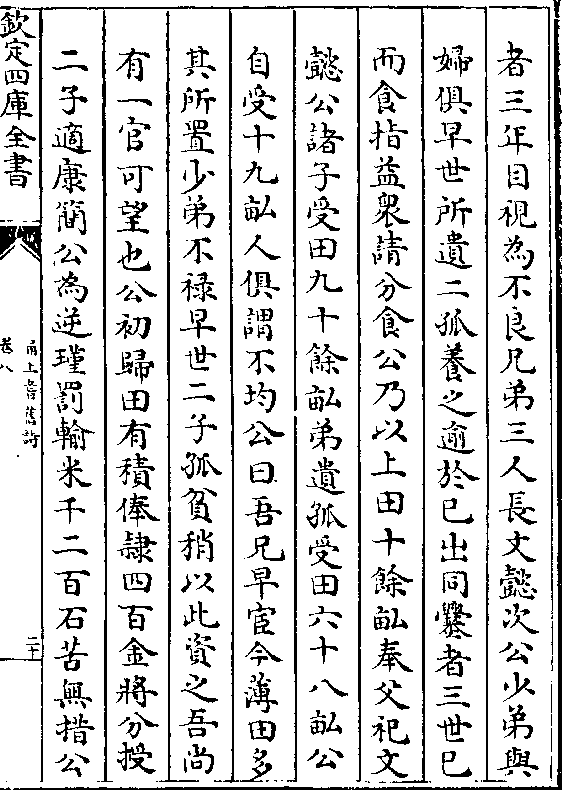 者三年目視為不良兄弟三人長文懿次公少弟與
婦俱早世所遺二孤養之逾於已出同爨者三世已
而食指益衆請分食公乃以上田十餘畝奉父祀文
懿公諸子受田九十餘畝弟遺孤受田六十八畝公
自受十九畝人俱謂不均公曰吾兄早宦今薄田多
其所置少弟不禄早世二子孤貧稍以此資之吾尚
有一官可望也公初歸田有積俸隷四百金將分授
二子適康簡公為逆瑾罰輸米千二百石苦無措公
欽定四庫全書
甬上耆舊詩
卷八
二十